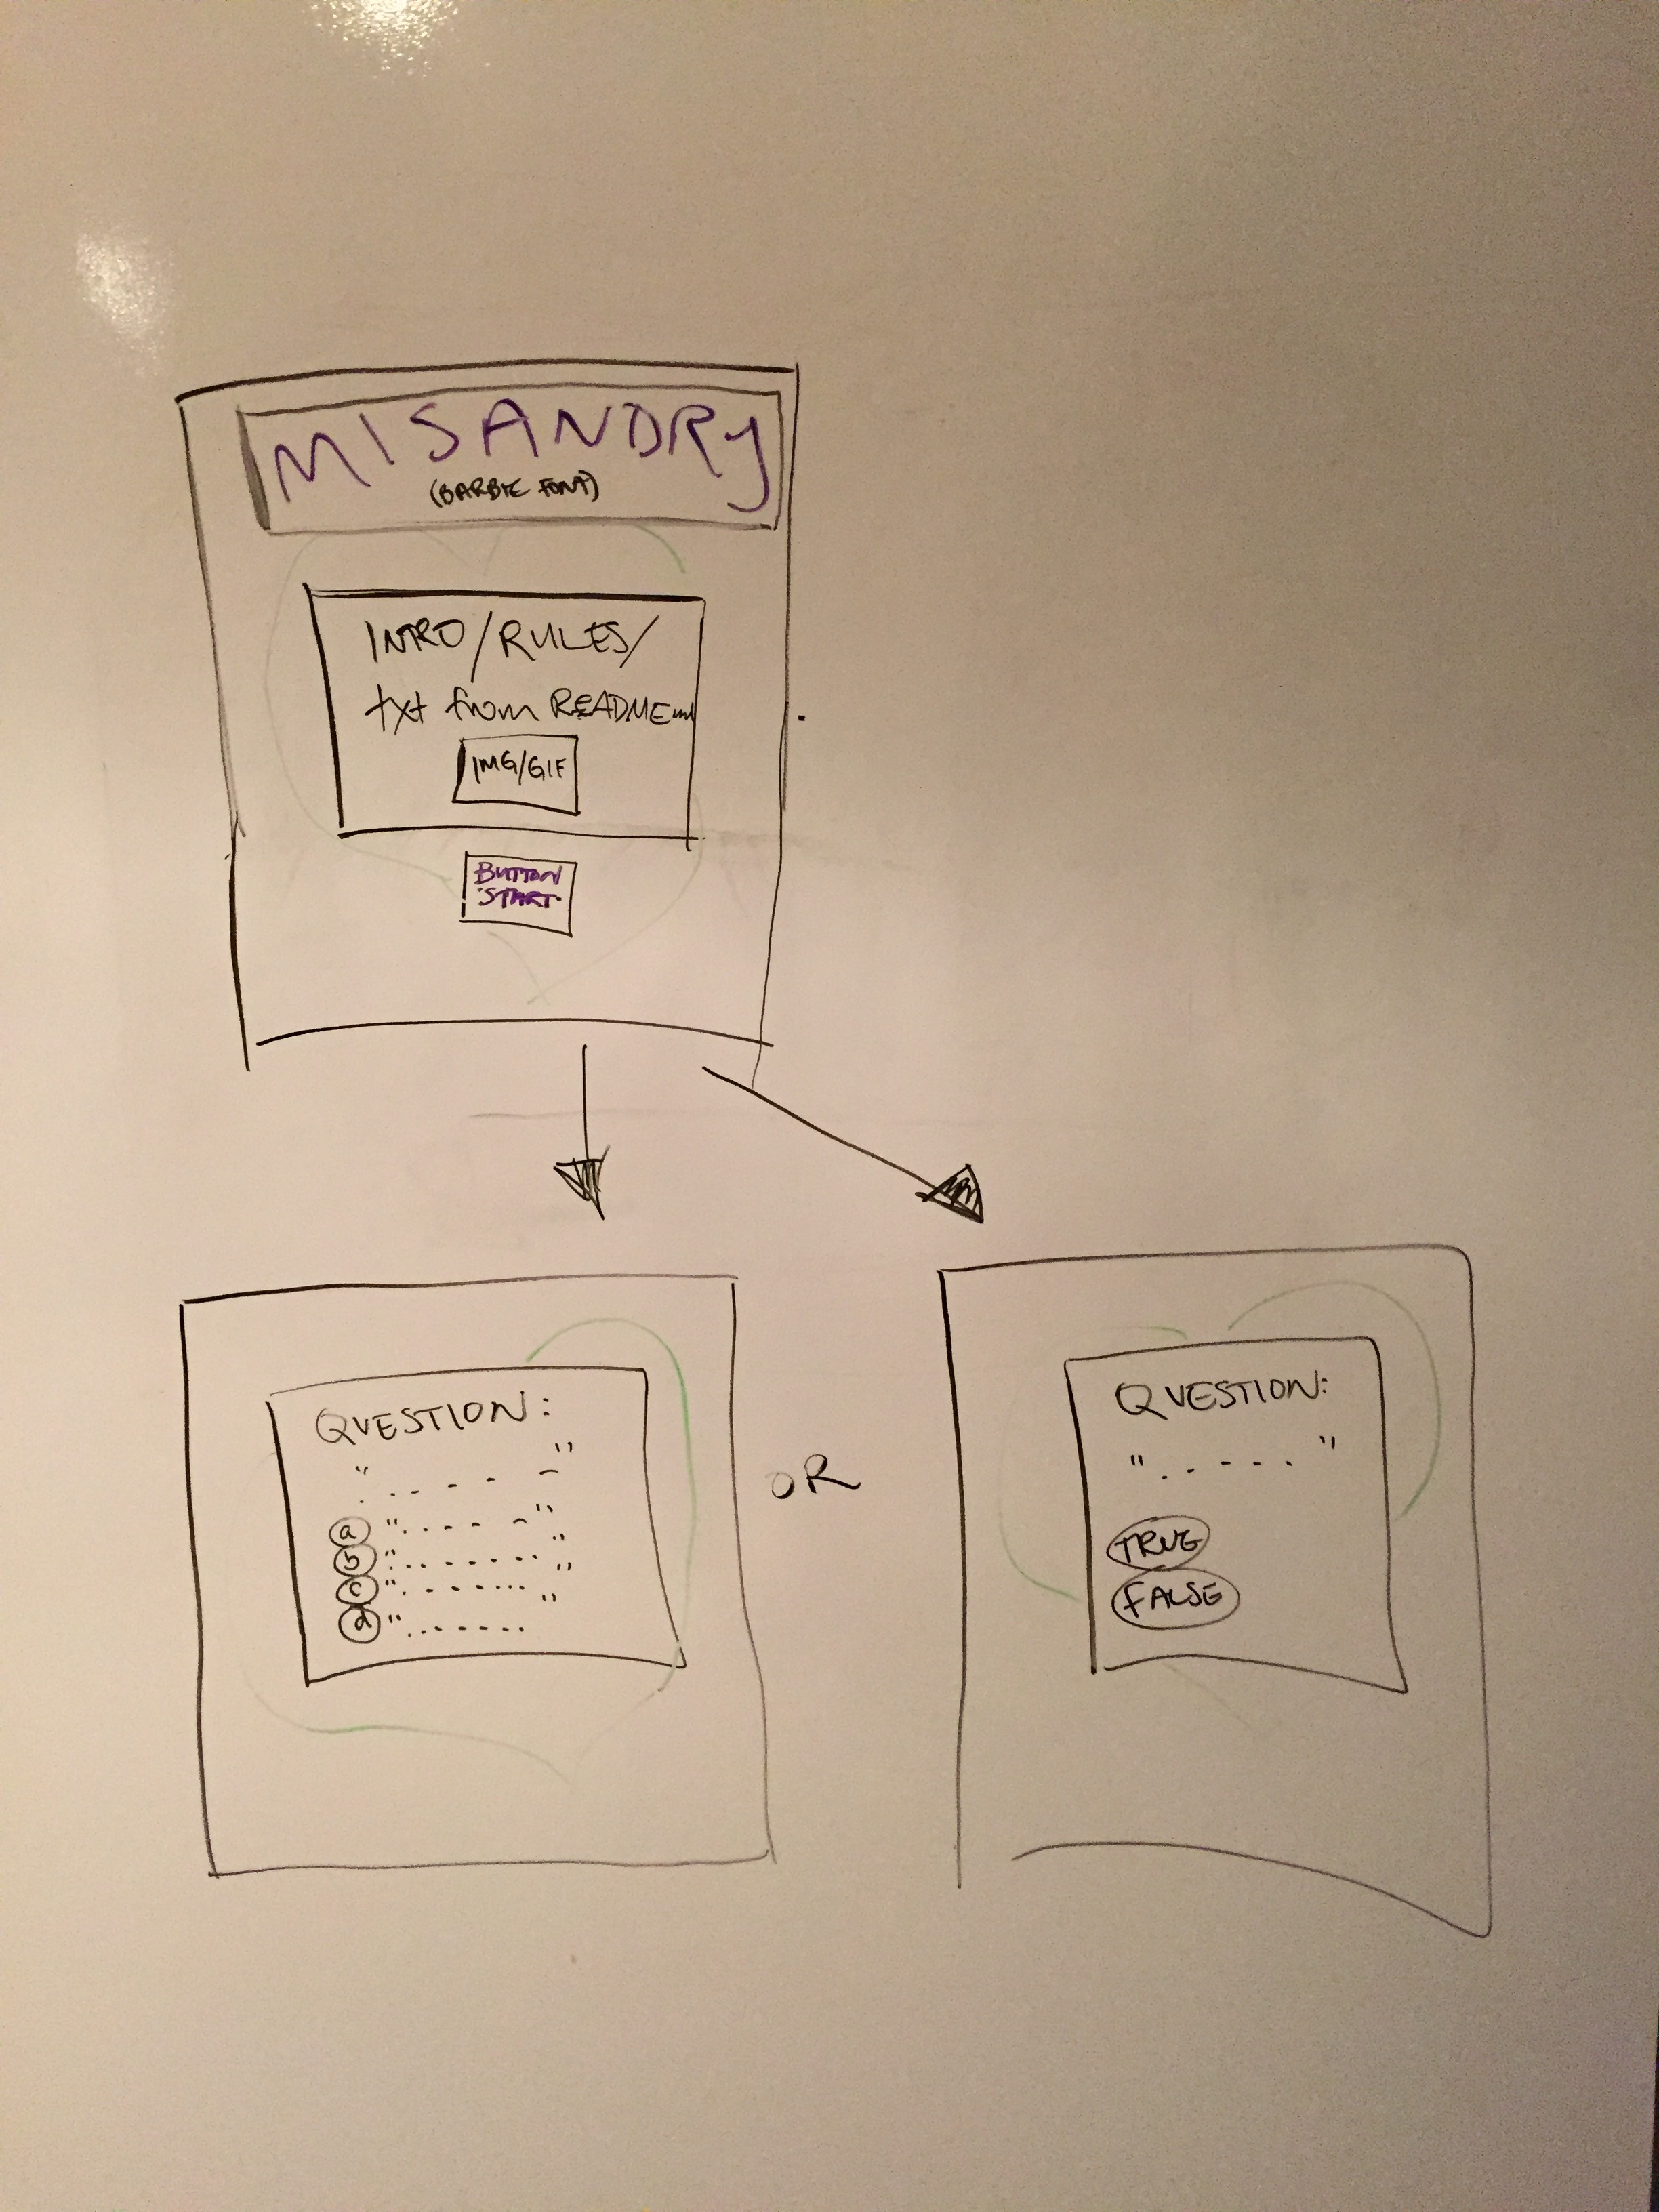 MISANDRY
(BARBIE FONT)
INTRO/RULES/
txt from README
IMG/GIF
BUTTON
START
QUESTION:
" . . - - - - "
a " . . - - - "
b " . . - - - - . . "
c " . - - - . . . "
d " . . - - - - .
OR
QUESTION:
" . . - - - . "
TRUE
FALSE